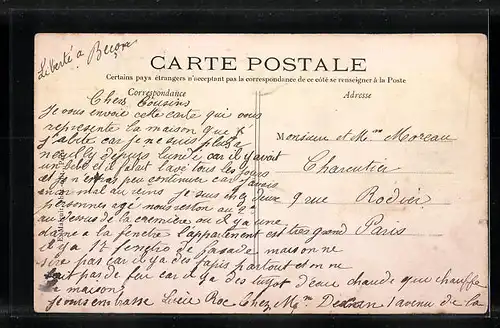 Liberté a Becon
CARTE POSTALE
Certains pays étrangers n'acceptant pas la correspondance de ce côté se renseigner à la Poste
Correspondance
Adresse
Chers Cousins
Je vous envoie cette carte qui vous
represente la maison que
j'abite car je ne suis plus a
neuilly depuis lundi car il y avait
un bébé et il falait lavé tous les jours
et je n'en pas peu continuer car j'avais
encor mal au reins je suis chez deux
personnes agé nous seston au 2
au dessus de la cremière ou il y a une
dame a la fenetre l'appartement est très grand
il y a 12 fenetre de fasade maison ne
sire pas car il y a des tapis partout et on ne
fait pas de feu car il y a des tuyot d'eau chaude qui chauffe
la maison
je vous embrasse Lucie Roc Chez Mme 1 avenue de la
Monsieur et Mme Moreau
Charcutier
9 rue Rodier
Paris